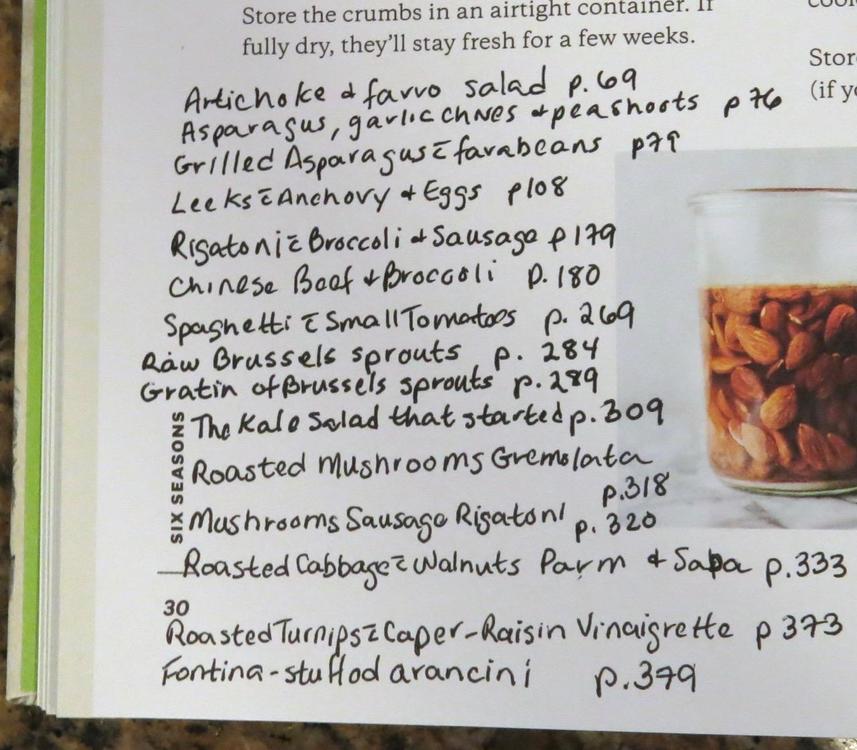 Store the crumbs in an airtight container. If
fully dry, they'll stay fresh for a few weeks.
Stor
(if y
Artichoke & farro salad p. 69
Asparagus, garlic chives & peashoots p 76
Grilled Asparagus c̄ farabeans p79
Leeks c̄ Anchovy & Eggs p108
Rigatoni c̄ Broccoli & Sausage p179
Chinese Beef & Broccoli p. 180
Spaghetti c̄ Small Tomatoes p. 269
Raw Brussels sprouts p. 284
Gratin of Brussels sprouts p. 289
The Kale Salad that started p. 309
Roasted Mushrooms Gremolata
p.318
Mushrooms Sausage Rigatoni p. 320
Roasted Cabbage c̄ Walnuts Parm & Saba p.333
SIX SEASONS
30
Roasted Turnips c̄ Caper-Raisin Vinaigrette p 373
Fontina-stuffod arancini p.379